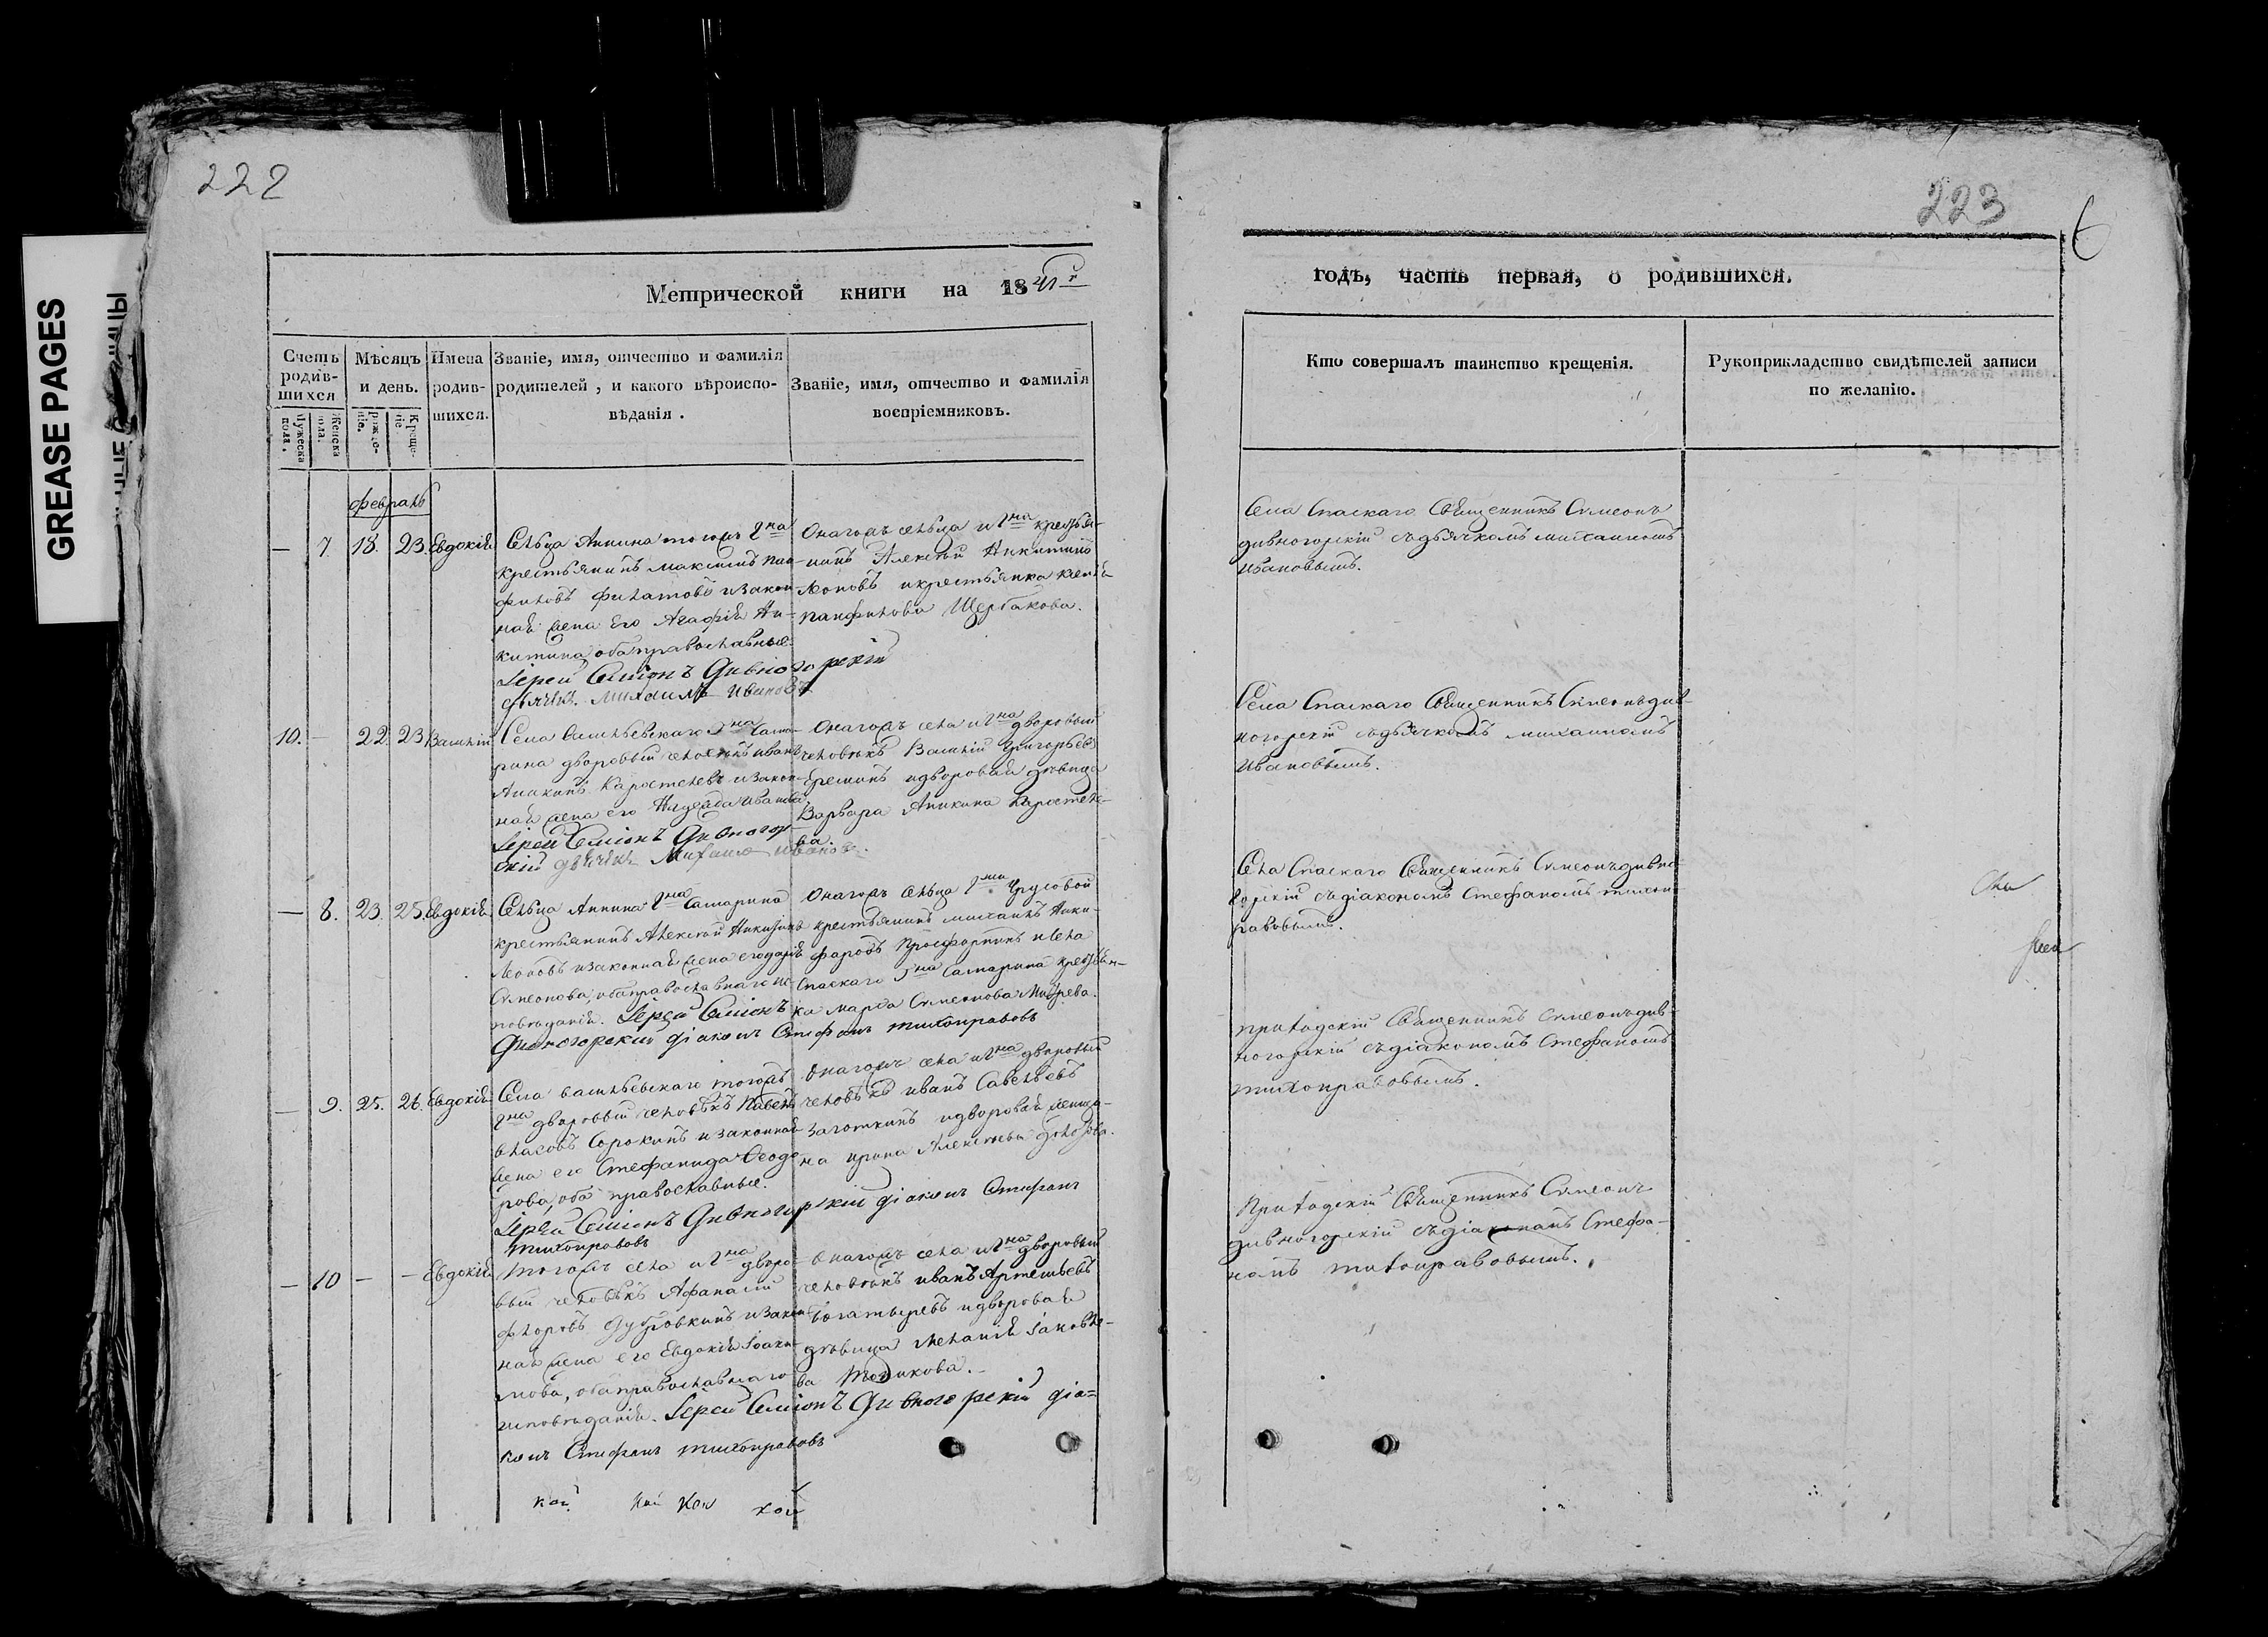 222
GREASE PAGES
Метрической книги на 18
Счетъ родив-шихся
Мѣсяцъ и день.
Имена родив-шихся.
Званіе, имя, отчество и фамилія
родителей, и какого вѣроиспо-
вѣданія.
Званіе, имя, отчество и фамилія
воспріемниковъ.
Мужеска пола.
Женска пола.
Рожде-ніе.
Креще-ніе
февраль
— 7 18. 23. Евдокія
Сельца Аннина тогожъ Гна
крестьянинъ Максимъ
филатовъ и закон-
ная жена его Агафія Ни-
китина оба православные.
Іерей Симіонъ Дивногорскій
дьячекъ Михаилъ Ивановъ
Онагожъ сельца и Гна крестья-
нинъ Алексѣй Никитинъ
и крестьянка
панфилова Щербакова.
10. — 22. 23 Василій
Села Васильевскаго Гна Сама-
рина дворовый человѣкъ иванъ
Аникинъ Каростелевъ и закон-
ная жена его Надежда иванова.
Іерей Симіонъ Дивногор-
скій дьячекъ Михаилъ Ивановъ.
Онагожъ села и Гна дворовый
человѣкъ Василій Григорьевъ
Ереминъ и дворовая дѣвица
Варвара Аникина Каростеле-
ва.
— 8. 23. 25. Евдокія
Сельца Аннина Гна Самарина
крестьянинъ Алексѣй Никитинъ
и законная жена его Дарія
Симеонова, оба православнаго ис-
повѣданія. Іерей Симіонъ
Дивногорскій діаконъ Стефанъ тихонравовъ
Онагожъ сельца Гжи Урусовой
крестьянинъ михаилъ Ники-
форовъ и села
Спаскаго Гна Самарина крестьян-
ка Марѳа Симеонова
— 9. 25. 26. Евдокія
Села васильевскаго тогожъ
Гна дворовый человѣкъ Павелъ
власовъ Сорокинъ и законная
жена его Стефанида Ѳеодо-
рова, оба православные.
Іерей Симіонъ Дивногорскій діаконъ Стефанъ
тихонравовъ
Онагожъ села и Гна дворовый
человѣкъ иванъ Савельевъ
и дворовая женщи-
на ирина Алексѣева
— 10 — — Евдокія
Тогожъ села и Гна дворо-
вый человѣкъ Афанасій
фроловъ Дубровкинъ и закон-
ная жена его Евдокія Іоаки-
мова, оба православнаго
исповѣданія. Іерей Симіонъ Дивногорскій діа-
конъ Стефанъ тихонравовъ
Онагожъ села и Гна дворовый
человѣкъ иванъ Артемьевъ
Богатыревъ и дворовая
дѣвица Меланія Іаковле-
ва
кой кой кой
223
6
годъ, часть первая, о родившихся.
Кто совершалъ таинство крещенія.
Рукоприкладство свидѣтелей записи
по желанію.
Села Спаскаго Священникъ Симеонъ
дивногорскій съ дьячкомъ михаиломъ
Ивановымъ.
Села Спаскаго Священникъ Симеонъ див-
ногорскій съ дьячкомъ михаиломъ
Ивановымъ.
Села Спаскаго Священникъ Симеонъ дивно-
горскій съ діакономъ Стефаномъ тихон-
равовымъ.
Приходскій Священникъ Симеонъ див-
ногорскій съ діакономъ Стефаномъ
тихонравовымъ.
Приходскій Священникъ Симеонъ
дивногорскій съ діакономъ Стефа-
номъ тихонравовымъ.